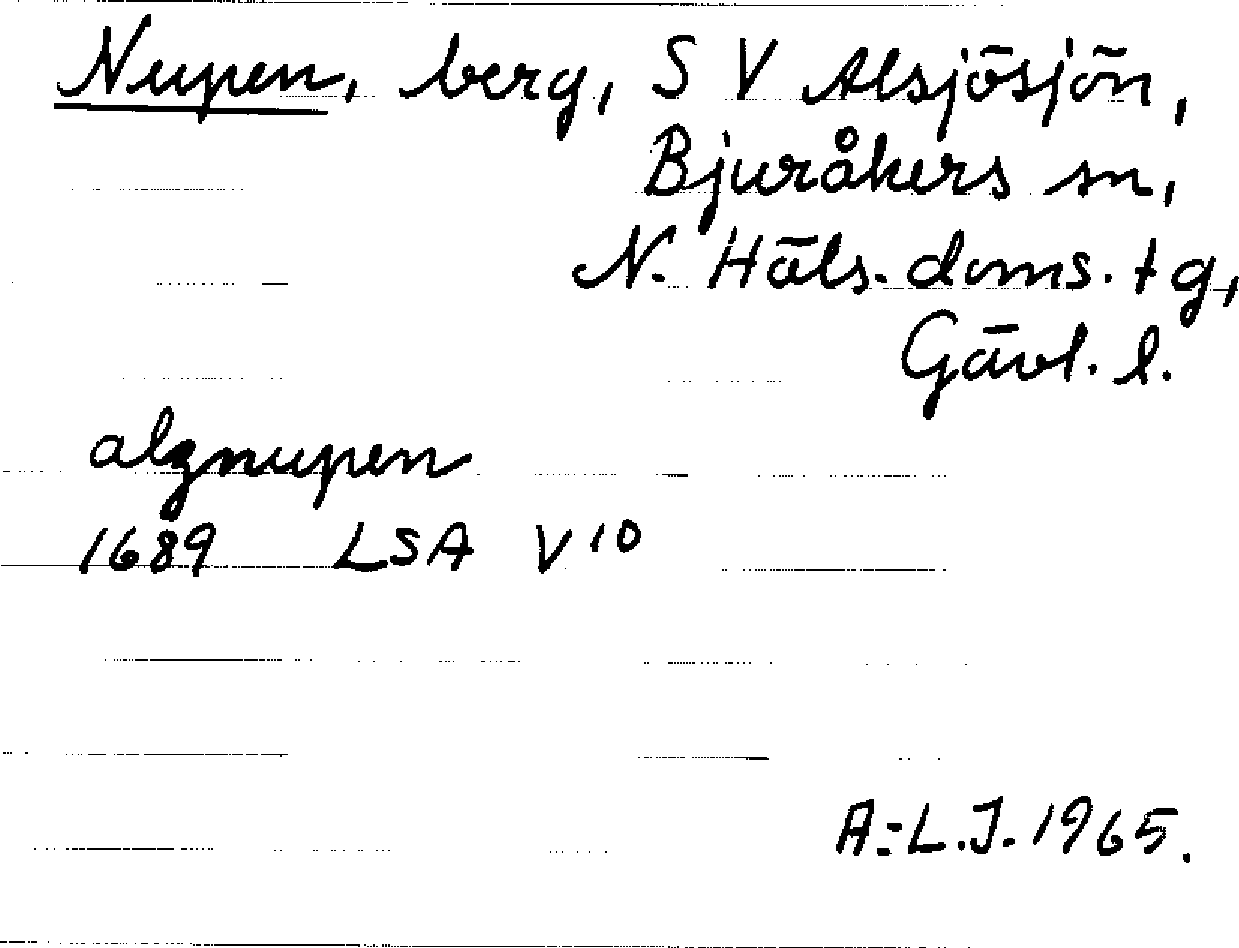 Nupen, berg, S V Alsjösjön,
Bjuråkers sn,
N. Häls. doms. tg,
Gävl. l.
algnupen
1689 LSA V 10
A-L.J. 1965.